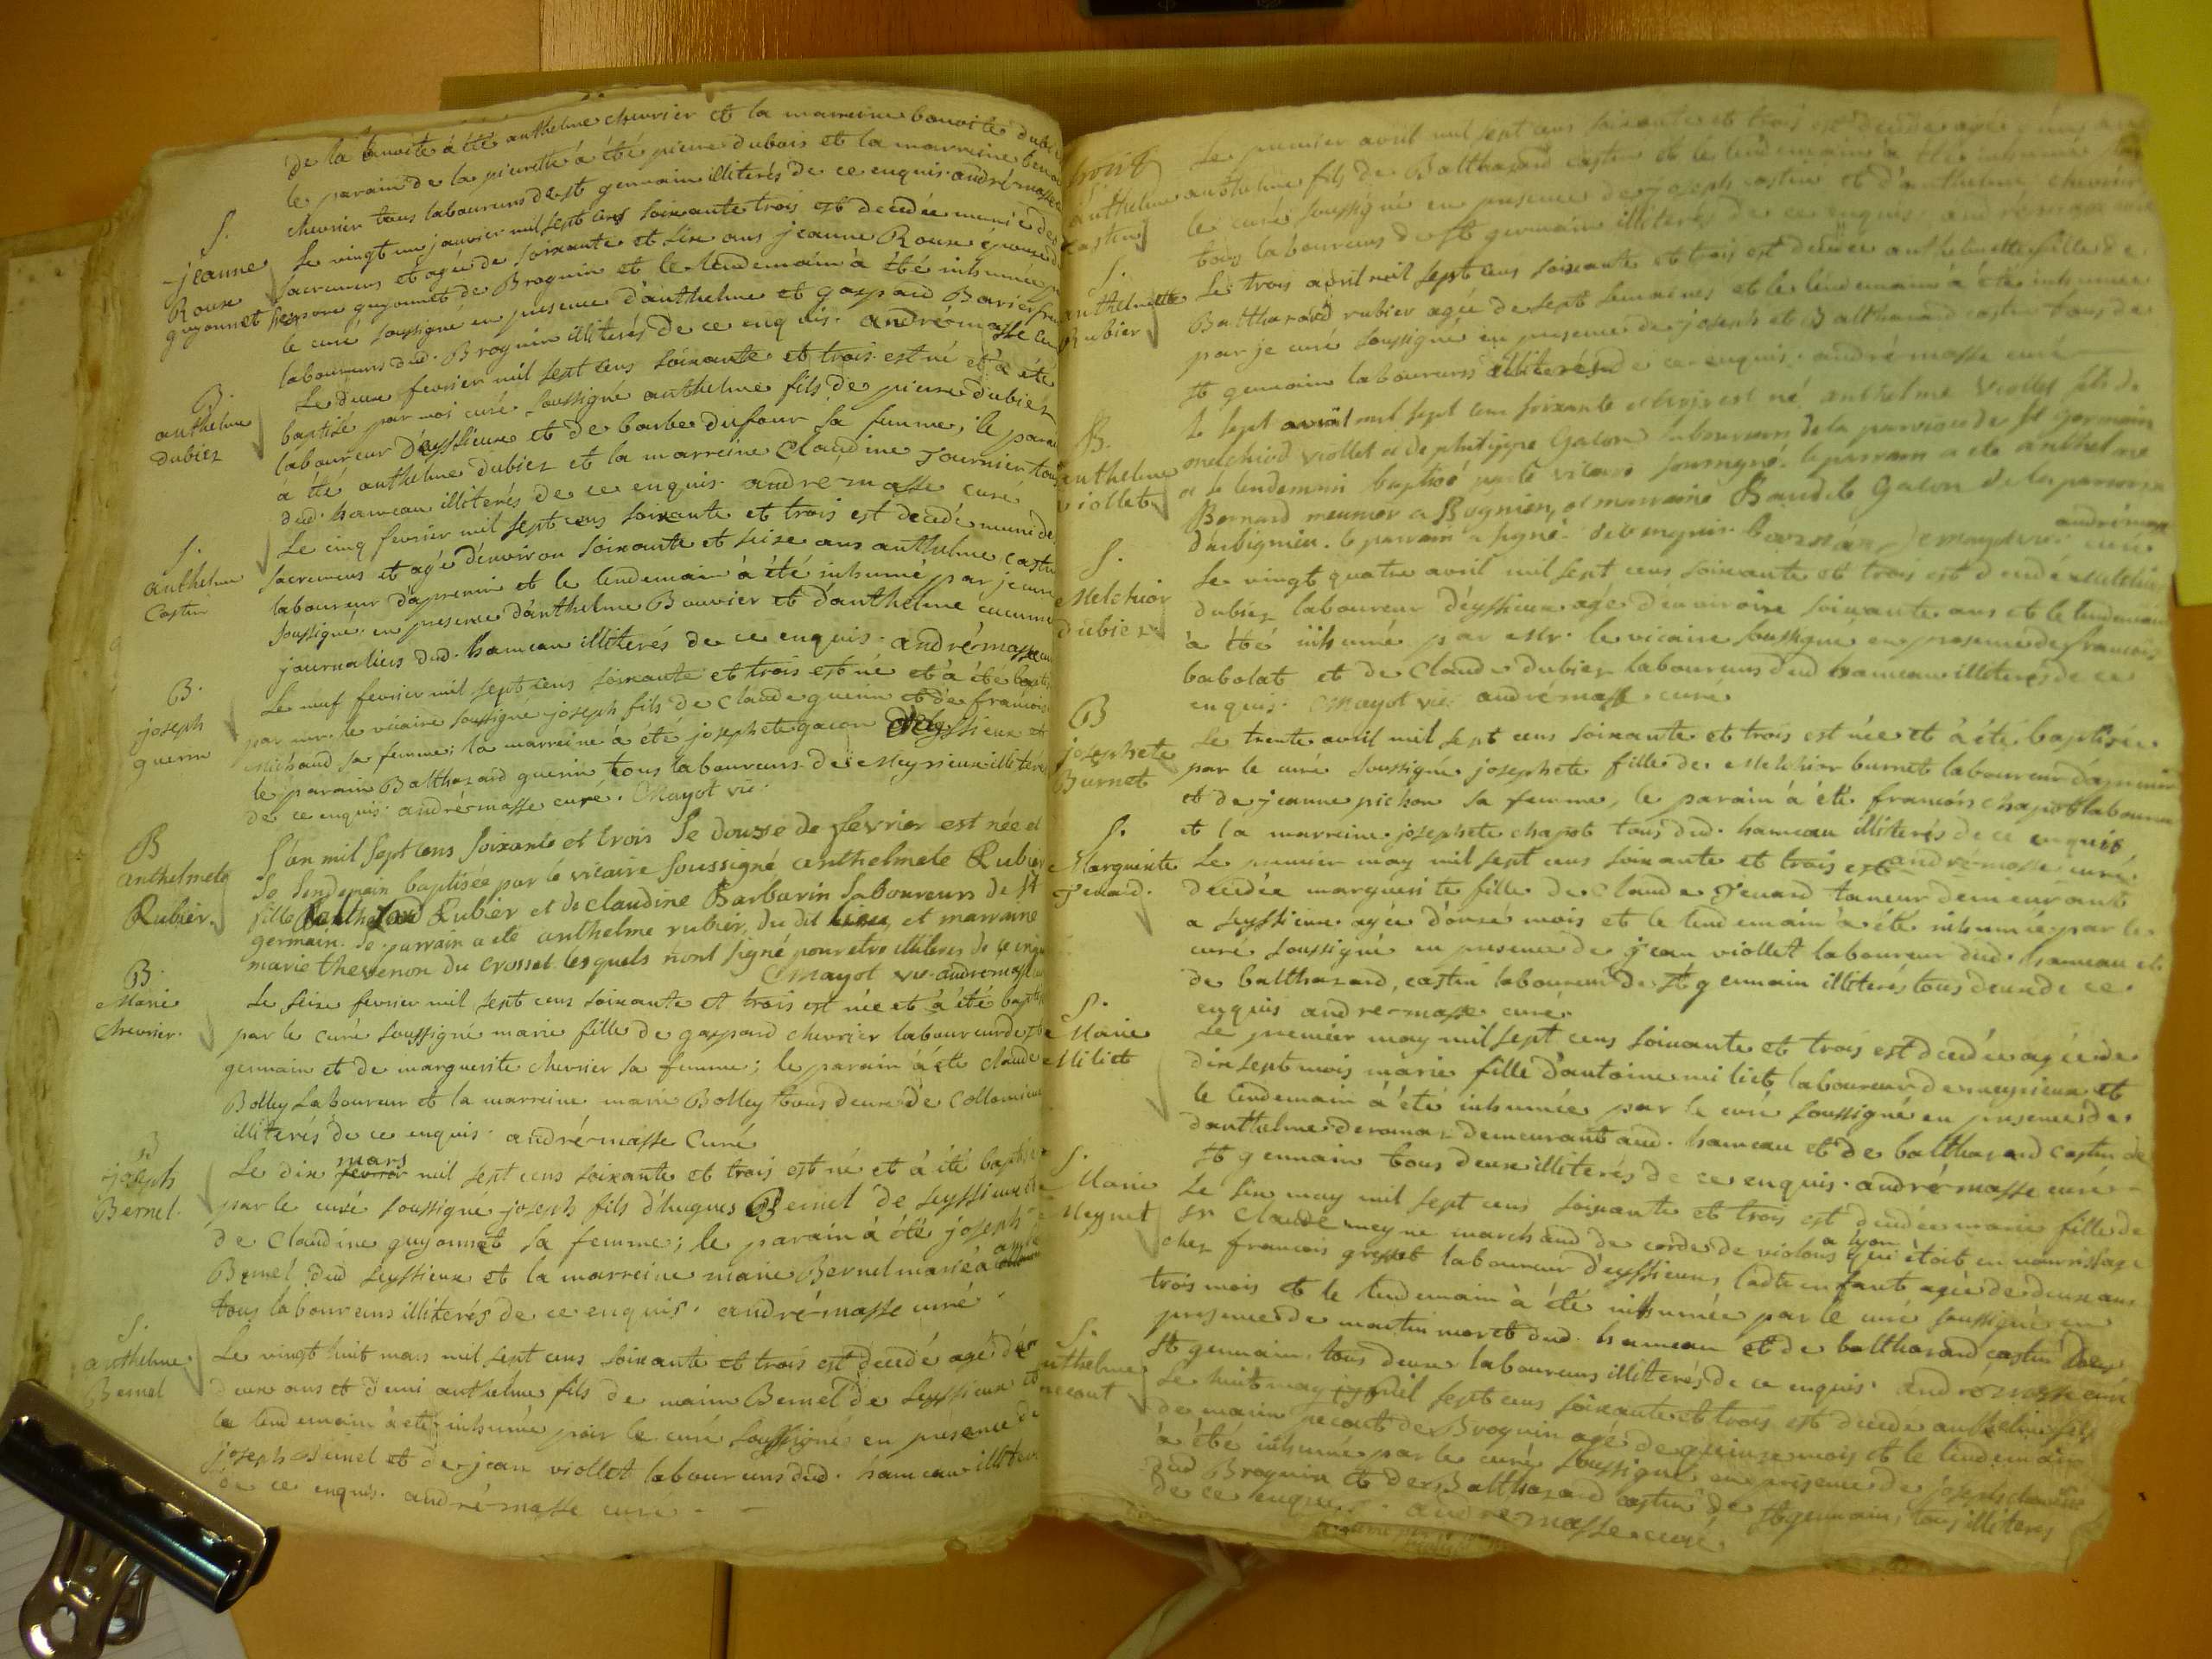 de la benoite à été anthelme chevrier et la marreine benoite
le parain de la pierrette à été pierre dubois et la marreine
chevrier tous laboureurs de st germain illiterés de ce enquis. andré masse
S.
jeanne
Roux
guyonnet
Le vingt un janvier mil sept cens soixante trois est decedée munie des
sacremens et agée de soixante et six ans jeanne Roux épouse
guyonnet de Brognin et le lendemain à été inhumée
le curé soussigné en presence d'anthelme et gaspard
laboureurs dud. Brognin illiterés de ce enquis. andré masse
B.
anthelme
dubiez
Le deux fevrier mil sept cens soixante et trois est né et à été
baptisé par moi curé soussigné anthelme fils de pierre dubiez
laboureur d'eyssieux et de barbe dufour sa femme, le parain
à été anthelme dubiez et la marreine Claudine Fournier tous
dud. hameau illiterés de ce enquis. andré masse curé
S.
anthelme
Castin
Le cinq fevrier mil sept cens soixante et trois est decedé muni de
sacremens et agé d'environ soixante et seize ans anthelme castin
laboureur d'apremin et le lendemain à été inhumé par je curé
soussigné en presence d'anthelme Bouvier et d'anthelme
journaliers dud. hameau illiterés de ce enquis. andré masse
B.
joseph
guerin
Le neuf fevrier mil sept cens soixante et trois est né et à été
par mr. le vicaire soussigné joseph fils de Claude guerin et de francoise
Michaud sa femme; la marreine à été josephete gacon d'eyssieux et
le parain Balthazard guerin tous laboureurs de Meyrieux illiterés
de ce enquis. andré masse curé. Mayot vic.
B
anthelmete
Rubier.
L'an mil sept cens soixante et trois le douze de fevrier est née et
le lendemain baptisée par le vicaire soussigné anthelmete Rubier
fille Balthazard Rubier et de claudine Barbarin laboureurs de St
germain. le parrain a été anthelme rubier, du dit lieu, et marraine
marie thevenon du crossel. lesquels n'ont signé pour etre illiteres de ce enquis
Mayot vic. andré masse
B.
Marie
chevrier.
Le seize fevrier mil sept cens soixante et trois est née et à été baptisée
par le curé soussigné marie fille de gaspard chevrier laboureur de st
germain et de marguerite chevrier sa femme; le parain à été claude
Bolley Laboureur et la marreine marie Bolley tous deux de Collomieu
illiterés de ce enquis. andré masse Curé
B
joseph
Bernel.
mars
Le dix fevrier mil sept cens soixante et trois est né et à été baptisé
par le curé soussigné joseph fils d'hugues Bernel de seyssieux et
de Claudine guyonnet sa femme; le parain à été joseph
Bernel dud seyssieux et la marreine marie Bernel mariée à
tous laboureurs illiterés de ce enquis. andré masse curé.
S.
anthelme
Bernel
Le vingt huit mars mil sept cens soixante et trois est decedé agé de
deux ans et demi anthelme fils de marin Bernel de seyssieux et
le lendemain à été inhumé par le curé soussigné en presence de
joseph Bernel et de jean viollet laboureurs dud. hameau illiterés
de ce enquis. andré masse curé.
anthelme
castin
Le premier avril mil sept cens soixante et trois est decedé agé
anthelme fils de Balthazard castin et le lendemain à été inhumé par
le curé soussigné en presence de joseph castin et d'anthelme chevrier
tous laboureurs de st germain illiterés de ce enquis. andré masse curé
S.
anthelmette
Rubier
Le trois avril mil sept cens soixante et trois est decedée anthelmette fille de
Balthazard rubier agée de sept semaines et le lendemain à été inhumée
par je curé soussigné en presence de joseph et Balthazard castin tous de
st germain laboureurs illiterés de ce enquis. andré masse curé
B.
anthelme
viollet
Le sept avril mil sept cens soixante et trois est né anthelme Viollet fils de
melchiod viollet et de philippe Gacon laboureurs de la parroisse de st germain
et le lendemain baptisé par le vicaire soussigné. le parrain a été anthelme
Bernard meunier a Brognien, et marraine Baudete Gacon de la parroisse
d'arbignieu. le parrain a signé. de ce enquis. andré masse
curé
S.
Melchior
dubiez
Le vingt quatre avril mil sept cens soixante et trois est decedé Melchior
dubiez laboureur d'eyssieux agé d'environ soixante ans et le lendemain
à été inhumé par mr. le vicaire soussigné en presence de francois
babolat et de Claude dubiez laboureurs dud hameau illiterés de ce
enquis. Mayot vic. andré masse curé
B
josephete
Burnet
Le trente avril mil sept cens soixante et trois est née et à été baptisée
par le curé soussigné josephete fille de Melchior burnet laboureur d'apremin
et de jeanne pichon sa femme, le parain à été francois chapot laboureur
et la marreine josephete chapot tous dud. hameau illiterés de ce enquis
andré masse curé.
S.
Marguerite
Fenard.
Le premier may mil sept cens soixante et trois est
decedée marguerite fille de Claude Fenard taneur demeurant
a seyssieux agée d'onze mois et le lendemain à été inhumée par le
curé soussigné en presence de jean viollet laboureur dud. hameau et
de balthazard castin laboureur de st germain illiterés tous deux de ce
enquis andré masse curé.
S.
Marie
Miliet
Le premier may mil sept cens soixante et trois est decedée agée de
dix sept mois marie fille d'antoine miliet laboureur de meyrieux et
le lendemain à été inhumée par le curé soussigné en presence de
d'anthelme deromaz demeurant aud. hameau et de balthazard castin de
st germain tous deux illiterés de ce enquis. andré masse curé
S.
Marie
Meynet
Le six may mil sept cens soixante et trois est decedée marie fille de
sr Claude meyne marchand de corde de violons a lyon qui étoit en nourissage
chez francois grosset laboureur d'eyssieux ladte enfant agée de deux ans
trois mois et le lendemain à été inhumée par le curé soussigné en
presence de martin moret dud. hameau et de balthazard castin de
st germain tous deux laboureurs illiterés de ce enquis. andré masse curé
S.
anthelme
pecout
Le huit may mil sept cens soixante et trois est decedé anthelme fils
de marin pecout de Brognin agé de quinze mois et le lendemain
à été inhumé par le curé soussigné en presence de joseph
dud Brognin et de Balthazard castin de st germain, tous illiteres
de ce enquis. andré masse curé.